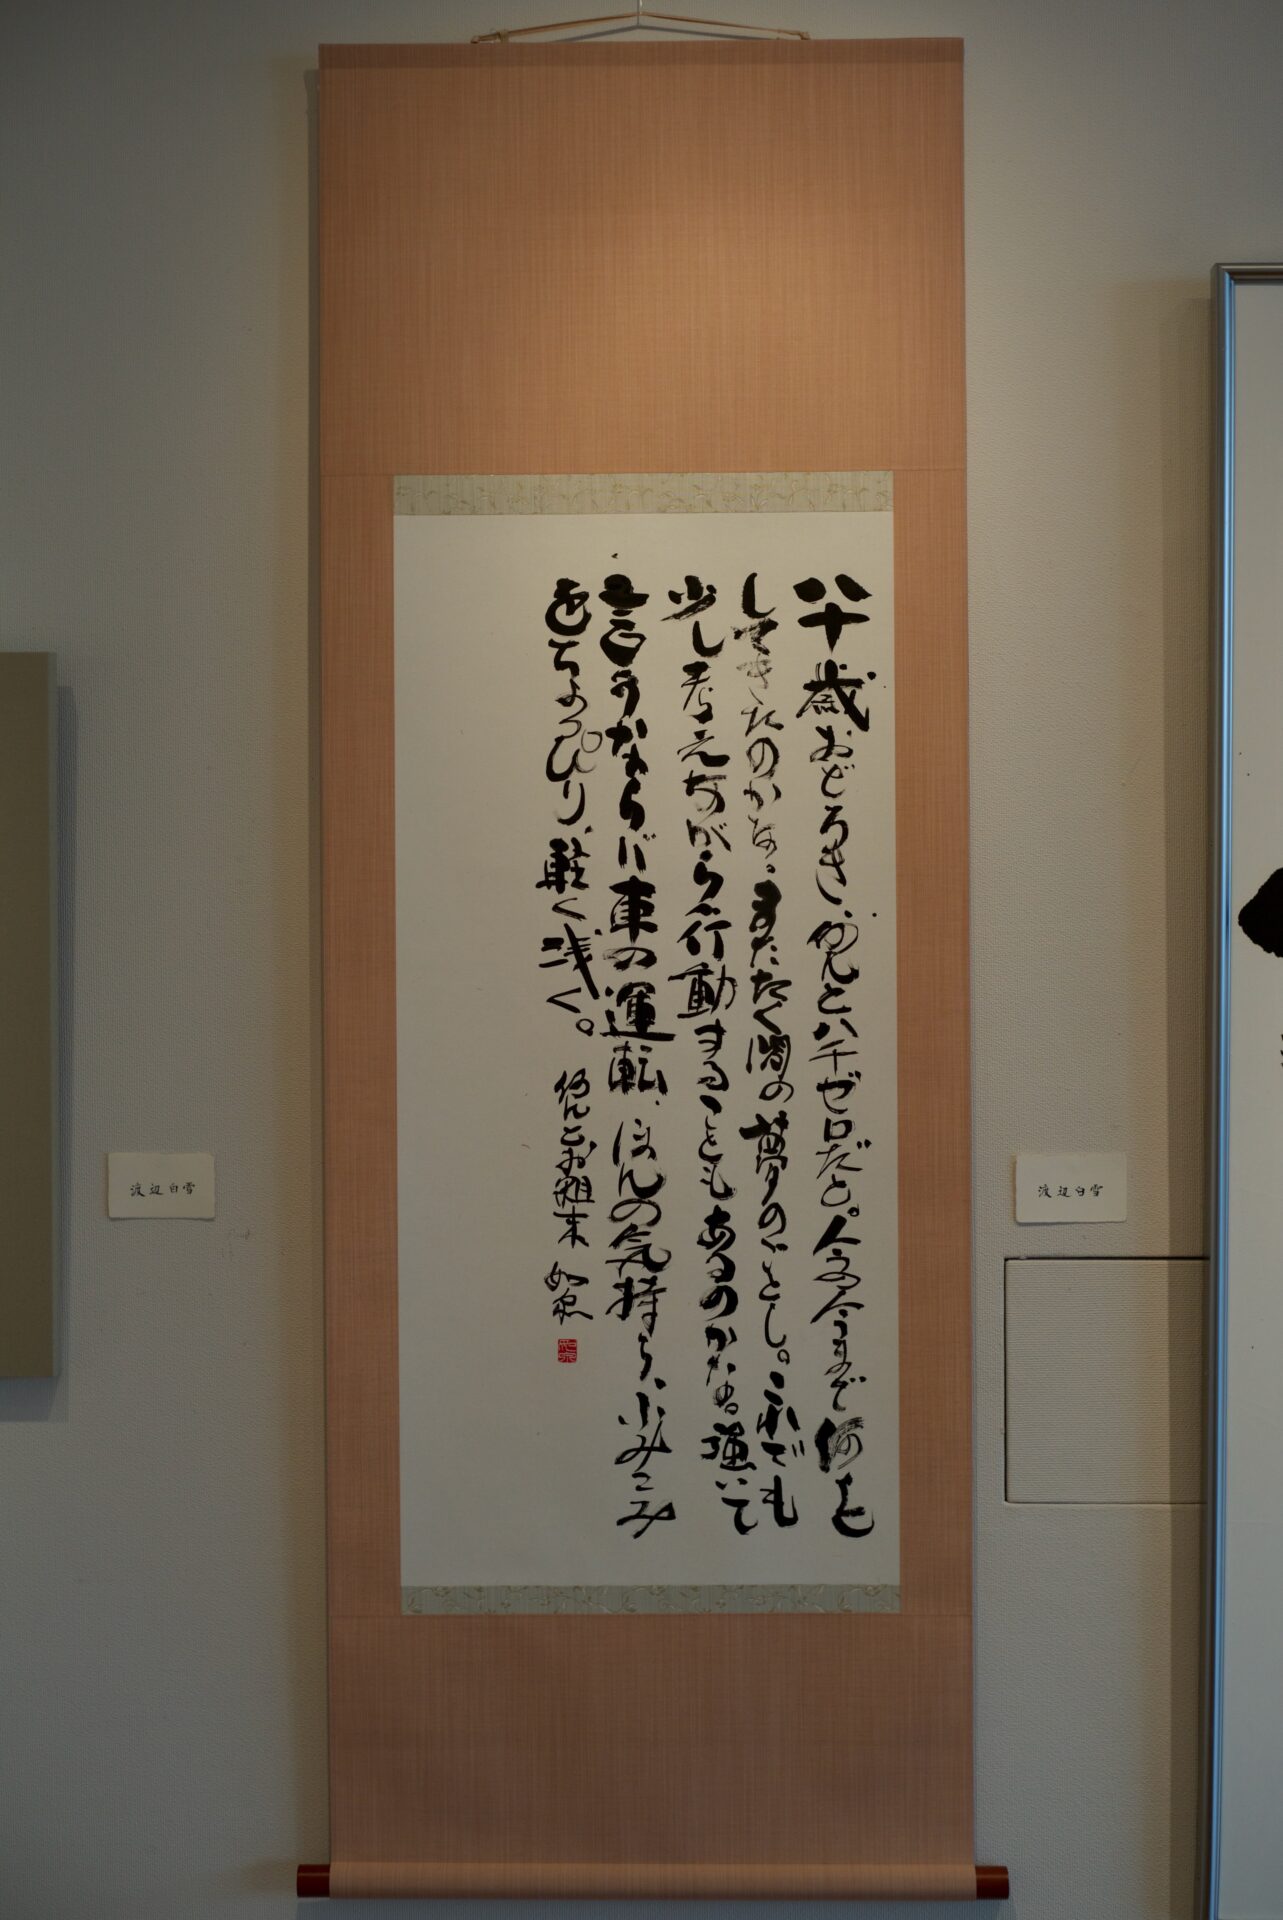 八十歳おどろき、何んと八千ゼロだと。人念今まで何を
してきたのかな。またたく間の夢のごとし。これでも
少し考えながら行動することもあるのかなぁ。強いて
言うならば車の運転、ほんの気持ち、小みこみ
をちょっぴり、軽く浅く。
何んとお粗末
渡辺白雪
渡辺白雪